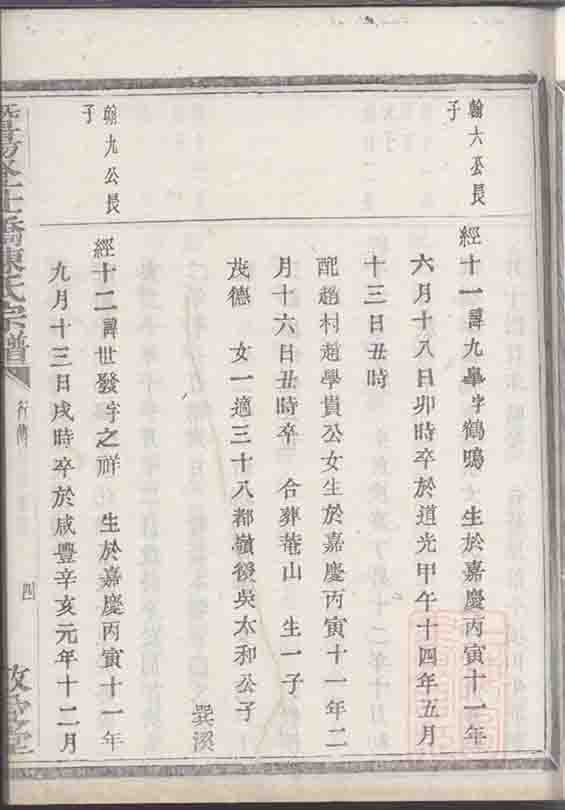 翰六公長
子
經十一諱九皋字鶴鳴　生於嘉慶丙寅十一年
六月十八日卯時卒於道光甲午十四年五月
十三日丑時
配趙村趙學貴公女生於嘉慶丙寅十一年二
月十六日丑時卒　合葬菴山　生一子
巽溪
茂德　女一適三十八都嶺後吳太和公子
翰九公長
子
經十二諱世發字之祥　生於嘉慶丙寅十一年
九月十三日戌時卒於咸豐辛亥元年十二月
橋陳氏宗譜
行傳
四